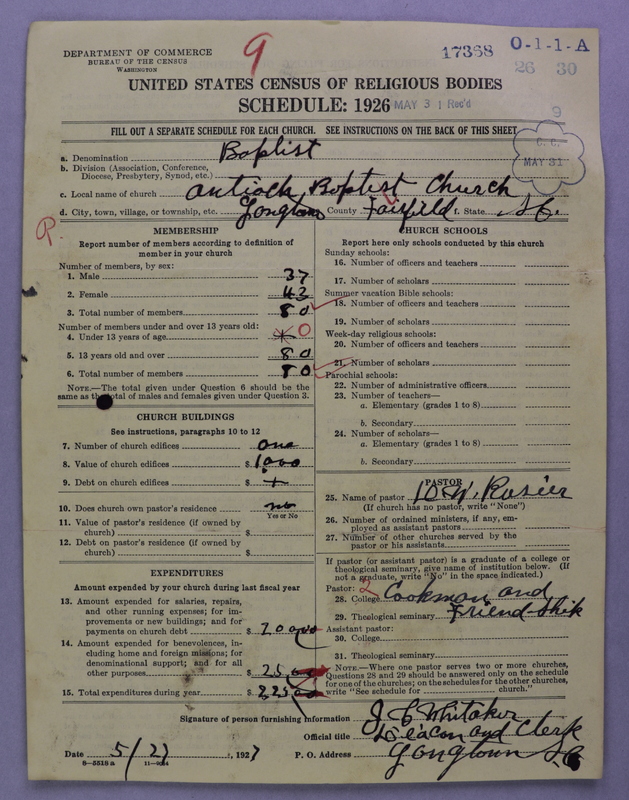 DEPARTMENT OF COMMERCE
BUREAU OF THE CENSUS
WASHINGTON
9
17368 O-1-1-A
26 30
UNITED STATES CENSUS OF RELIGIOUS BODIES
SCHEDULE: 1926 MAY 31 Rec'd
9
FILL OUT A SEPARATE SCHEDULE FOR EACH CHURCH. SEE INSTRUCTIONS ON THE BACK OF THIS SHEET
C. C.
MAY 31
a. Denomination Baptist
b. Division (Association, Conference, Diocese, Presbytery, Synod, etc.)
c. Local name of church Antioch Baptist Church
d. City, town, village, or township, etc. Longtown County Fairfield f. State S.C.
P.
MEMBERSHIP
Report number of members according to definition of member in your church
Number of members, by sex:
1. Male 37
2. Female 43
3. Total number of members 80
Number of members under and over 13 years old:
4. Under 13 years of age 0
5. 13 years old and over 80
6. Total number of members 80
NOTE.—The total given under Question 6 should be the same as the total of males and females given under Question 3.
CHURCH BUILDINGS
See instructions, paragraphs 10 to 12
7. Number of church edifices one
8. Value of church edifices $ 1,000
9. Debt on church edifices $
10. Does church own pastor's residence no
Yes or No
11. Value of pastor's residence (if owned by church) $
12. Debt on pastor's residence (if owned by church) $
EXPENDITURES
Amount expended by your church during last fiscal year
13. Amount expended for salaries, repairs, and other running expenses; for improvements or new buildings; and for payments on church debt $ 200
14. Amount expended for benevolences, including home and foreign missions; for denominational support; and for all other purposes $ 25
15. Total expenditures during year $ 225
CHURCH SCHOOLS
Report here only schools conducted by this church
Sunday schools:
16. Number of officers and teachers
17. Number of scholars
Summer vacation Bible schools:
18. Number of officers and teachers
19. Number of scholars
Week-day religious schools:
20. Number of officers and teachers
21. Number of scholars
Parochial schools:
22. Number of administrative officers
23. Number of teachers—
a. Elementary (grades 1 to 8)
b. Secondary
24. Number of scholars—
a. Elementary (grades 1 to 8)
b. Secondary
PASTOR
25. Name of pastor W. Rosier
(If church has no pastor, write "None")
26. Number of ordained ministers, if any, employed as assistant pastors
27. Number of other churches served by the pastor or his assistants
If pastor (or assistant pastor) is a graduate of a college or theological seminary, give name of institution below. (If not a graduate, write "No" in the space indicated.)
Pastor: 2
28. College Cookman and
29. Theological seminary Friendship
Assistant pastor:
30. College
31. Theological seminary
NOTE.—Where one pastor serves two or more churches, Questions 28 and 29 should be answered only on the schedule for one of the churches; on the schedules for the other churches, write "See schedule for church."
Signature of person furnishing information J C Whitaker
Official title Deacon and Clerk
Date 5/27, 1927 P. O. Address Longtown S C
8—5518a 11—9084